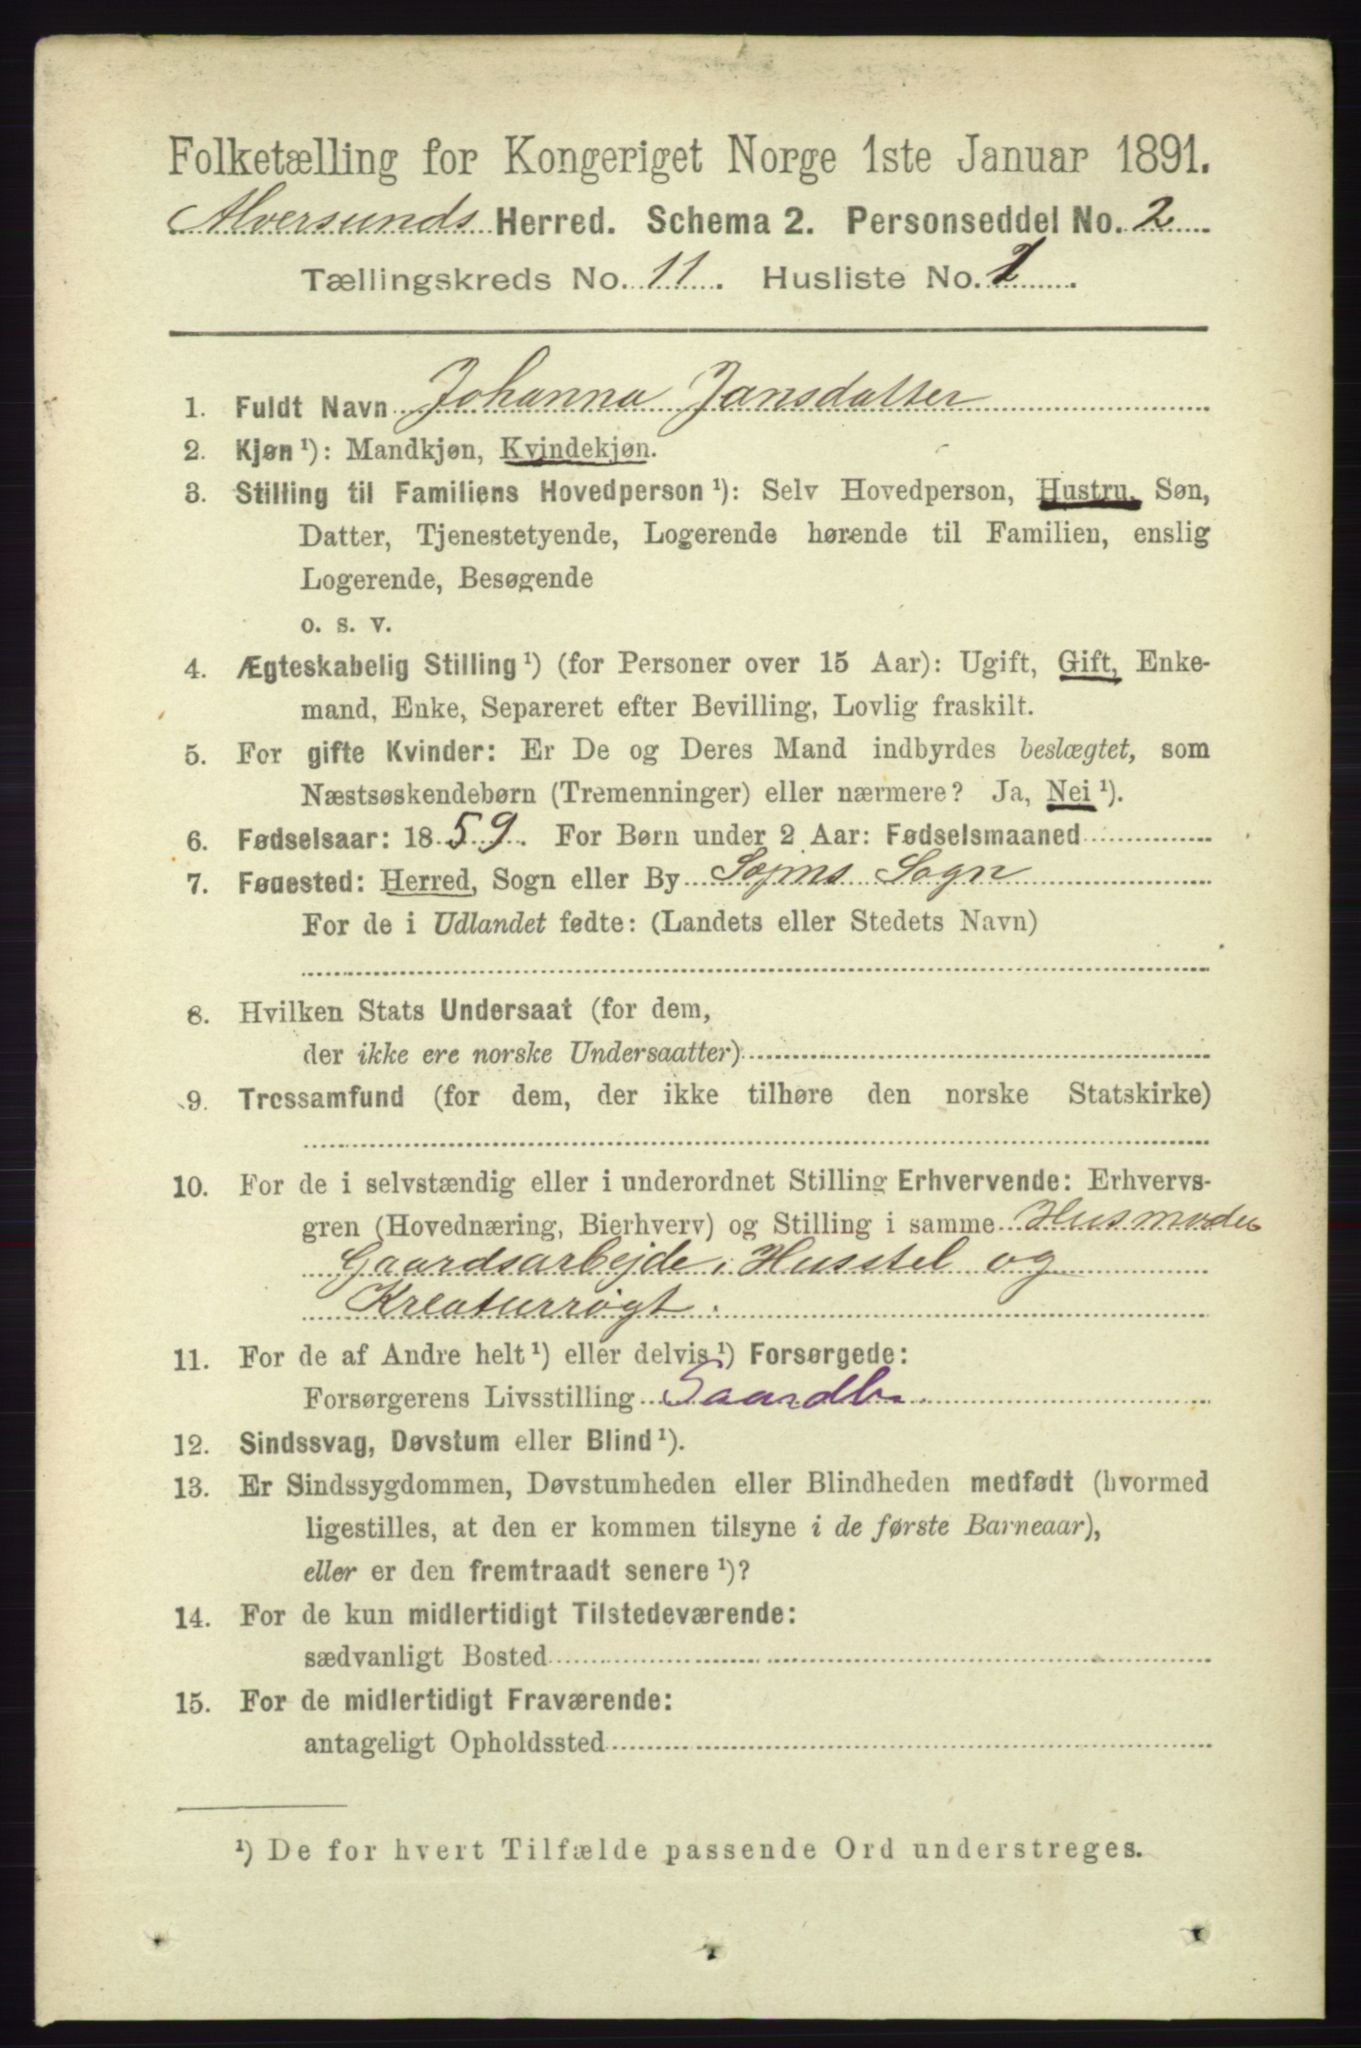 Folketælling for Kongeriget Norge 1ste Januar 1891.
Alversunds Herred. Schema 2. Personseddel No. 2
Tællingskreds No. 11. Husliste No. 1.
1. Fuldt Navn Johanna Jansdatter
2. Kjøn ¹): Mandkjøn, Kvindekjøn.
3. Stilling til Familiens Hovedperson ¹): Selv Hovedperson, Hustru, Søn,
Datter, Tjenestetyende, Logerende hørende til Familien, enslig
Logerende, Besøgende
o. s. v.
4. Ægteskabelig Stilling ¹) (for Personer over 15 Aar): Ugift, Gift, Enke-
mand, Enke, Separeret efter Bevilling, Lovlig fraskilt.
5. For gifte Kvinder: Er De og Deres Mand indbyrdes beslægtet, som
Næstsøskendebørn (Tremenninger) eller nærmere? Ja, Nei ¹).
6. Fødselsaar: 1859. For Børn under 2 Aar: Fødselsmaaned
7. Fødested: Herred, Sogn eller By Sogn
For de i Udlandet fødte: (Landets eller Stedets Navn)
8. Hvilken Stats Undersaat (for dem,
der ikke ere norske Undersaatter)
9. Trossamfund (for dem, der ikke tilhøre den norske Statskirke)
10. For de i selvstændig eller i underordnet Stilling Erhvervende: Erhvervs-
gren (Hovednæring, Bierhverv) og Stilling i samme Husmoder
Gaardsarbejde, Husstel og
Kreaturrøgt.
11. For de af Andre helt ¹) eller delvis ¹) Forsørgede:
Forsørgerens Livsstilling Gaardbr.
12. Sindssvag, Døvstum eller Blind ¹).
13. Er Sindssygdommen, Døvstumheden eller Blindheden medfødt (hvormed
ligestilles, at den er kommen tilsyne i de første Barneaar),
eller er den fremtraadt senere ¹)?
14. For de kun midlertidigt Tilstedeværende:
sædvanligt Bosted
15. For de midlertidigt Fraværende:
antageligt Opholdssted
¹) De for hvert Tilfælde passende Ord understreges.